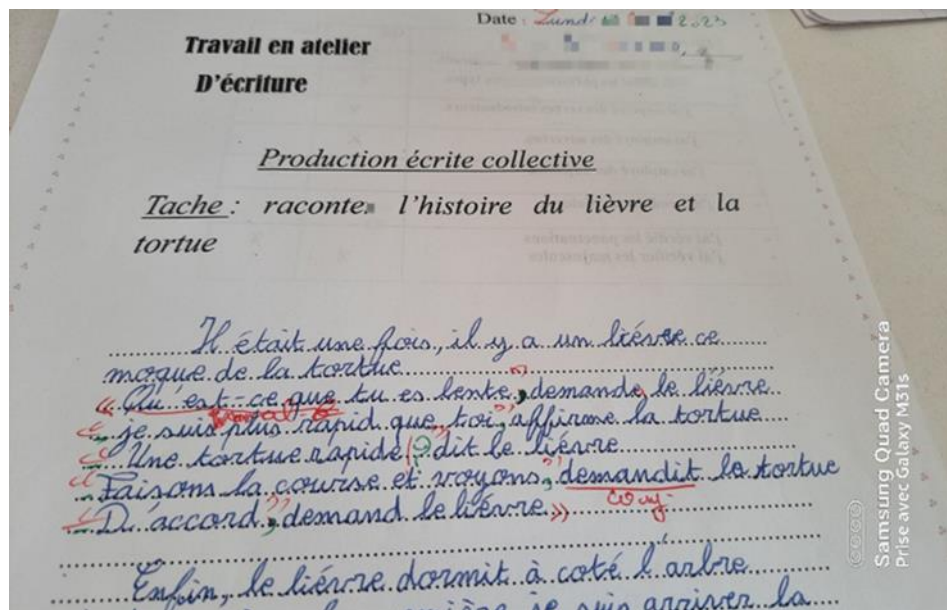 Date : Lundi 2023
Travail en atelier
D'écriture
Production écrite collective
Tache : raconter l'histoire du lièvre et la
tortue
Il était une fois, il y a un liévre ce
moque de la tortue
« Qu'est-ce que tu es lente », demande le liévre
" je suis plus rapid que toi", affirme la tortue
" Une tortue rapide !? dit le liévre
" Faisons la course et voyons", demandit la tortue
" D'accord", demand le liévre »
Enfin, le liévre dormit à coté l'arbre
je suis arriver la
Samsung Quad Camera
Prise avec Galaxy M31s